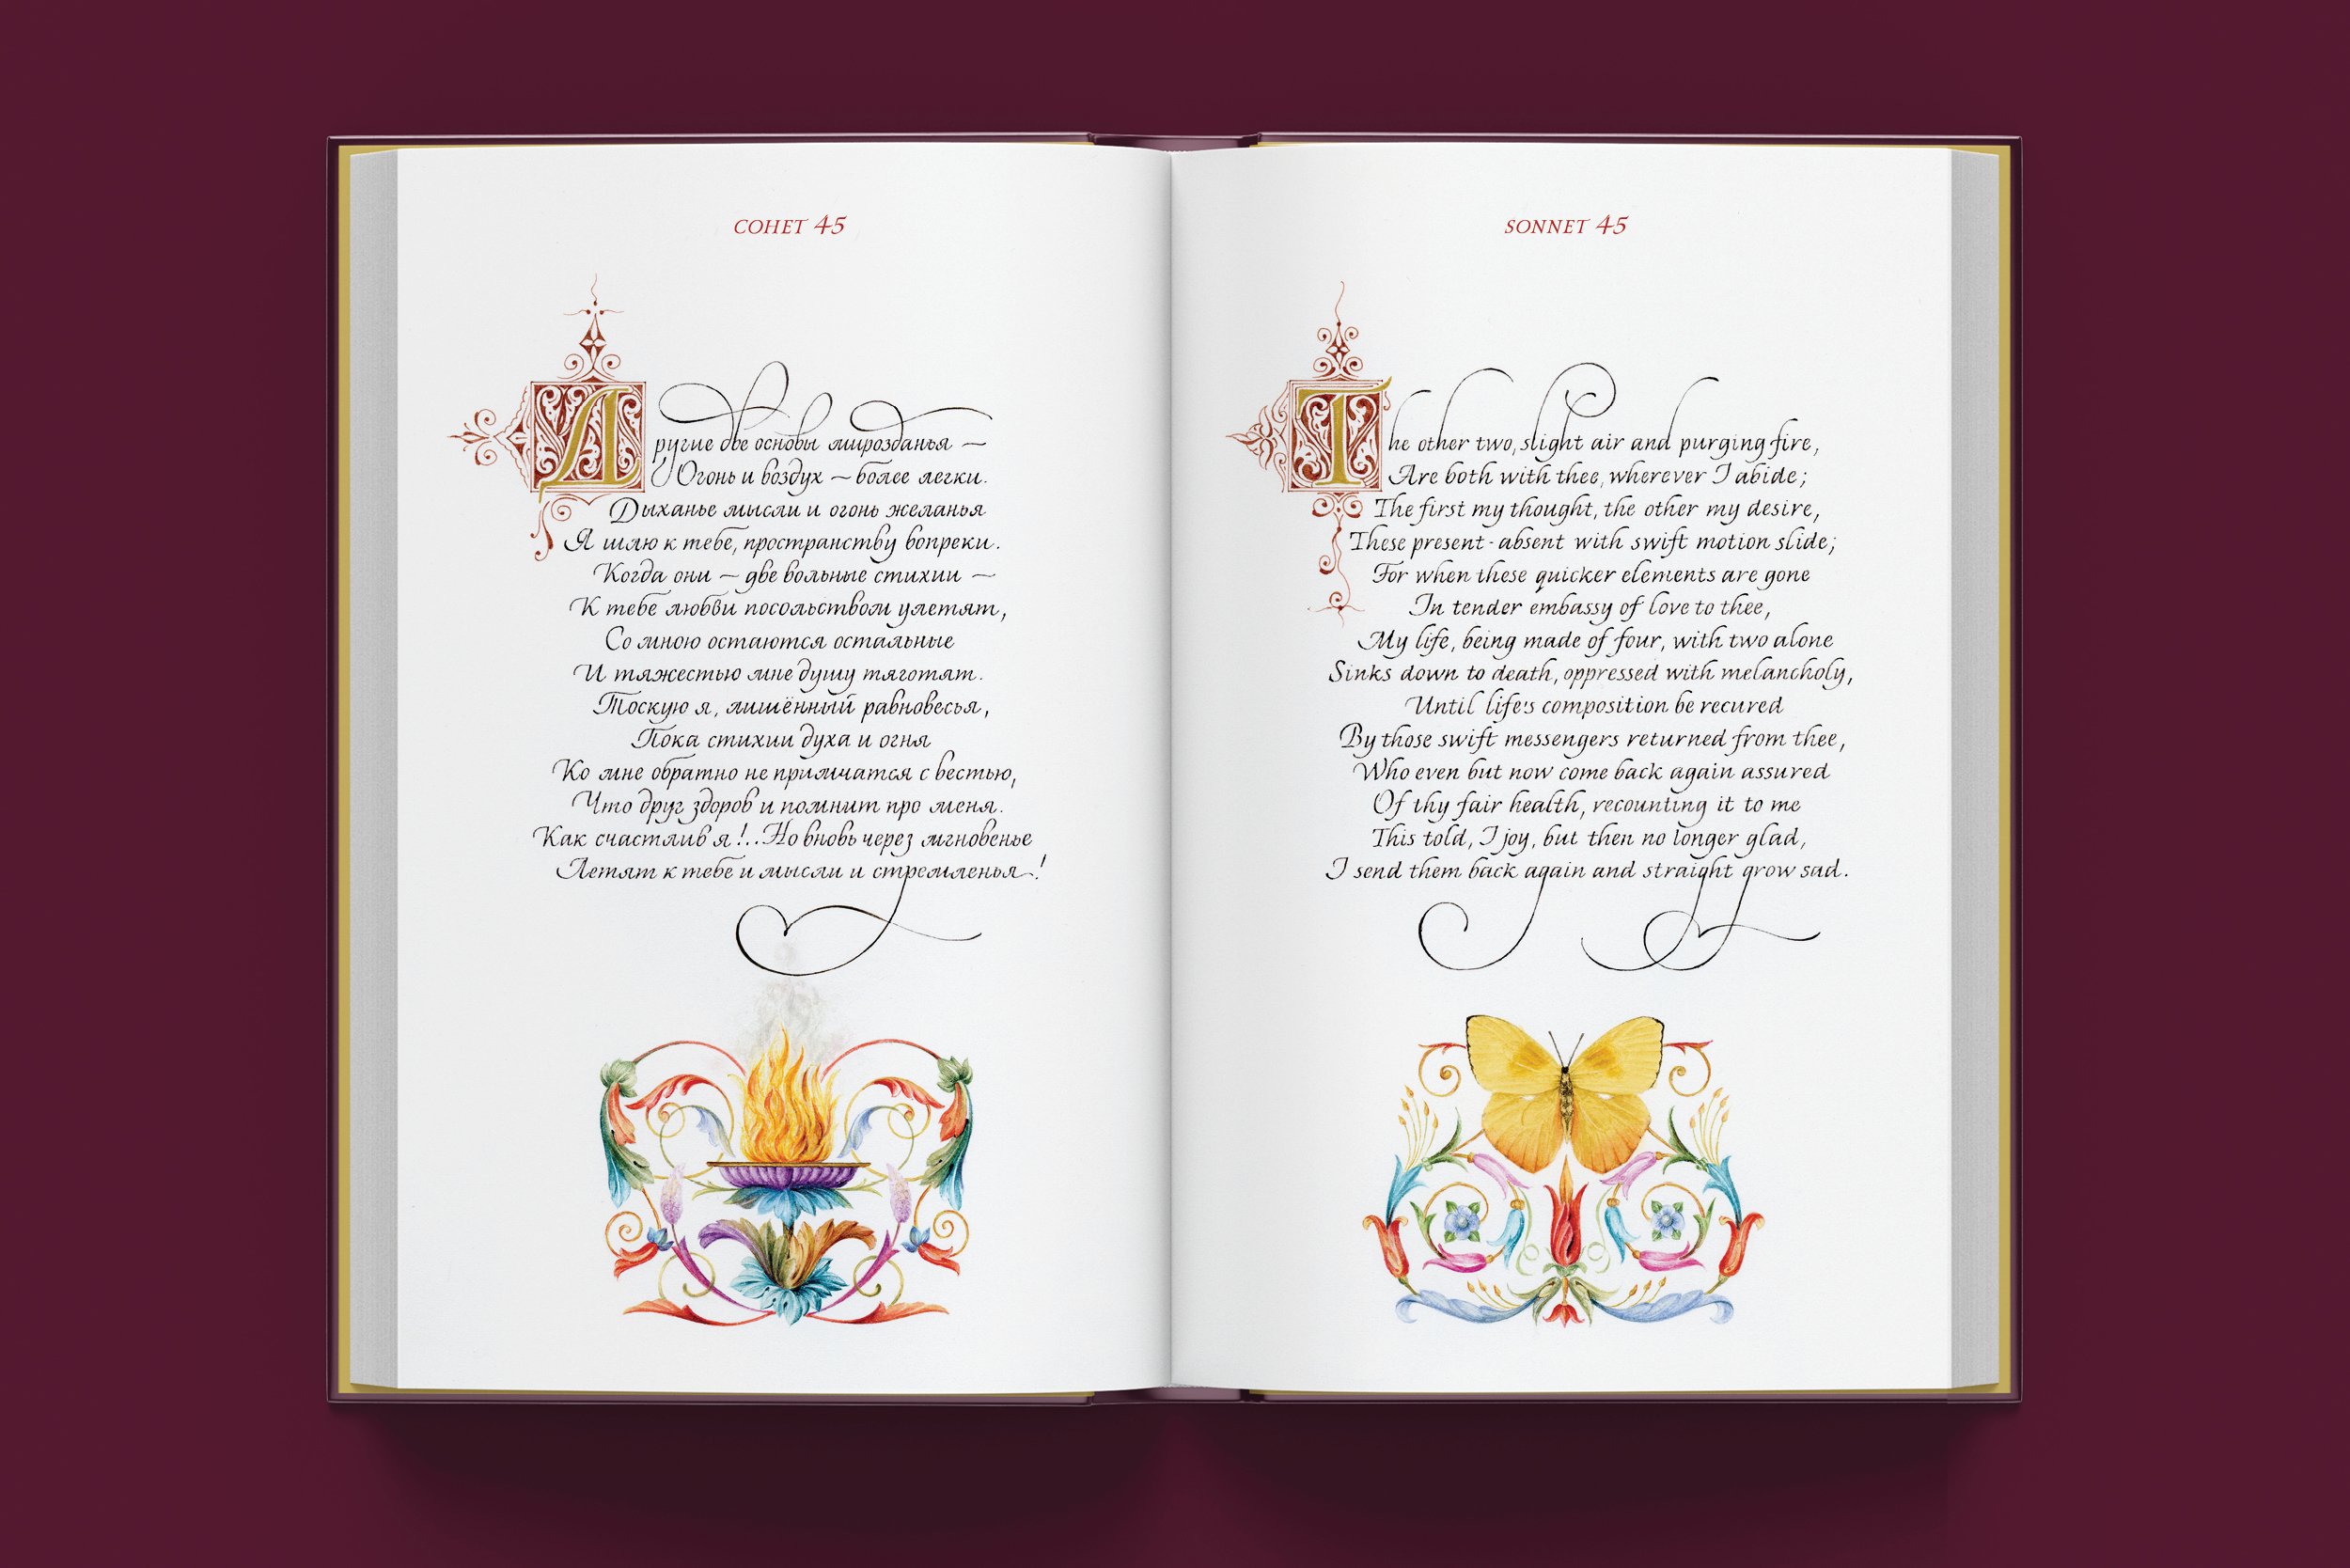 СОНЕТ 45
Другие две основы мирозданья —
Огонь и воздух — более легки.
Дыханье мысли и огонь желанья
Я шлю к тебе, пространству вопреки.
Когда они — две вольные стихии —
К тебе любви посольством улетят,
Со мною остаются остальные
И тяжестью мне душу тяготят.
Тоскую я, лишённый равновесья,
Пока стихии духа и огня
Ко мне обратно не примчатся с вестью,
Что друг здоров и помнит про меня.
Как счастлив я!..Но вновь через мгновенье
Летят к тебе и мысли и стремленья!
SONNET 45
The other two, slight air and purging fire,
Are both with thee, wherever I abide;
The first my thought, the other my desire,
These present-absent with swift motion slide;
For when these quicker elements are gone
In tender embassy of love to thee,
My life, being made of four, with two alone
Sinks down to death, oppressed with melancholy,
Until life's composition be recured
By those swift messengers returned from thee,
Who even but now come back again assured
Of thy fair health, recounting it to me
This told, I joy, but then no longer glad,
I send them back again and straight grow sad.